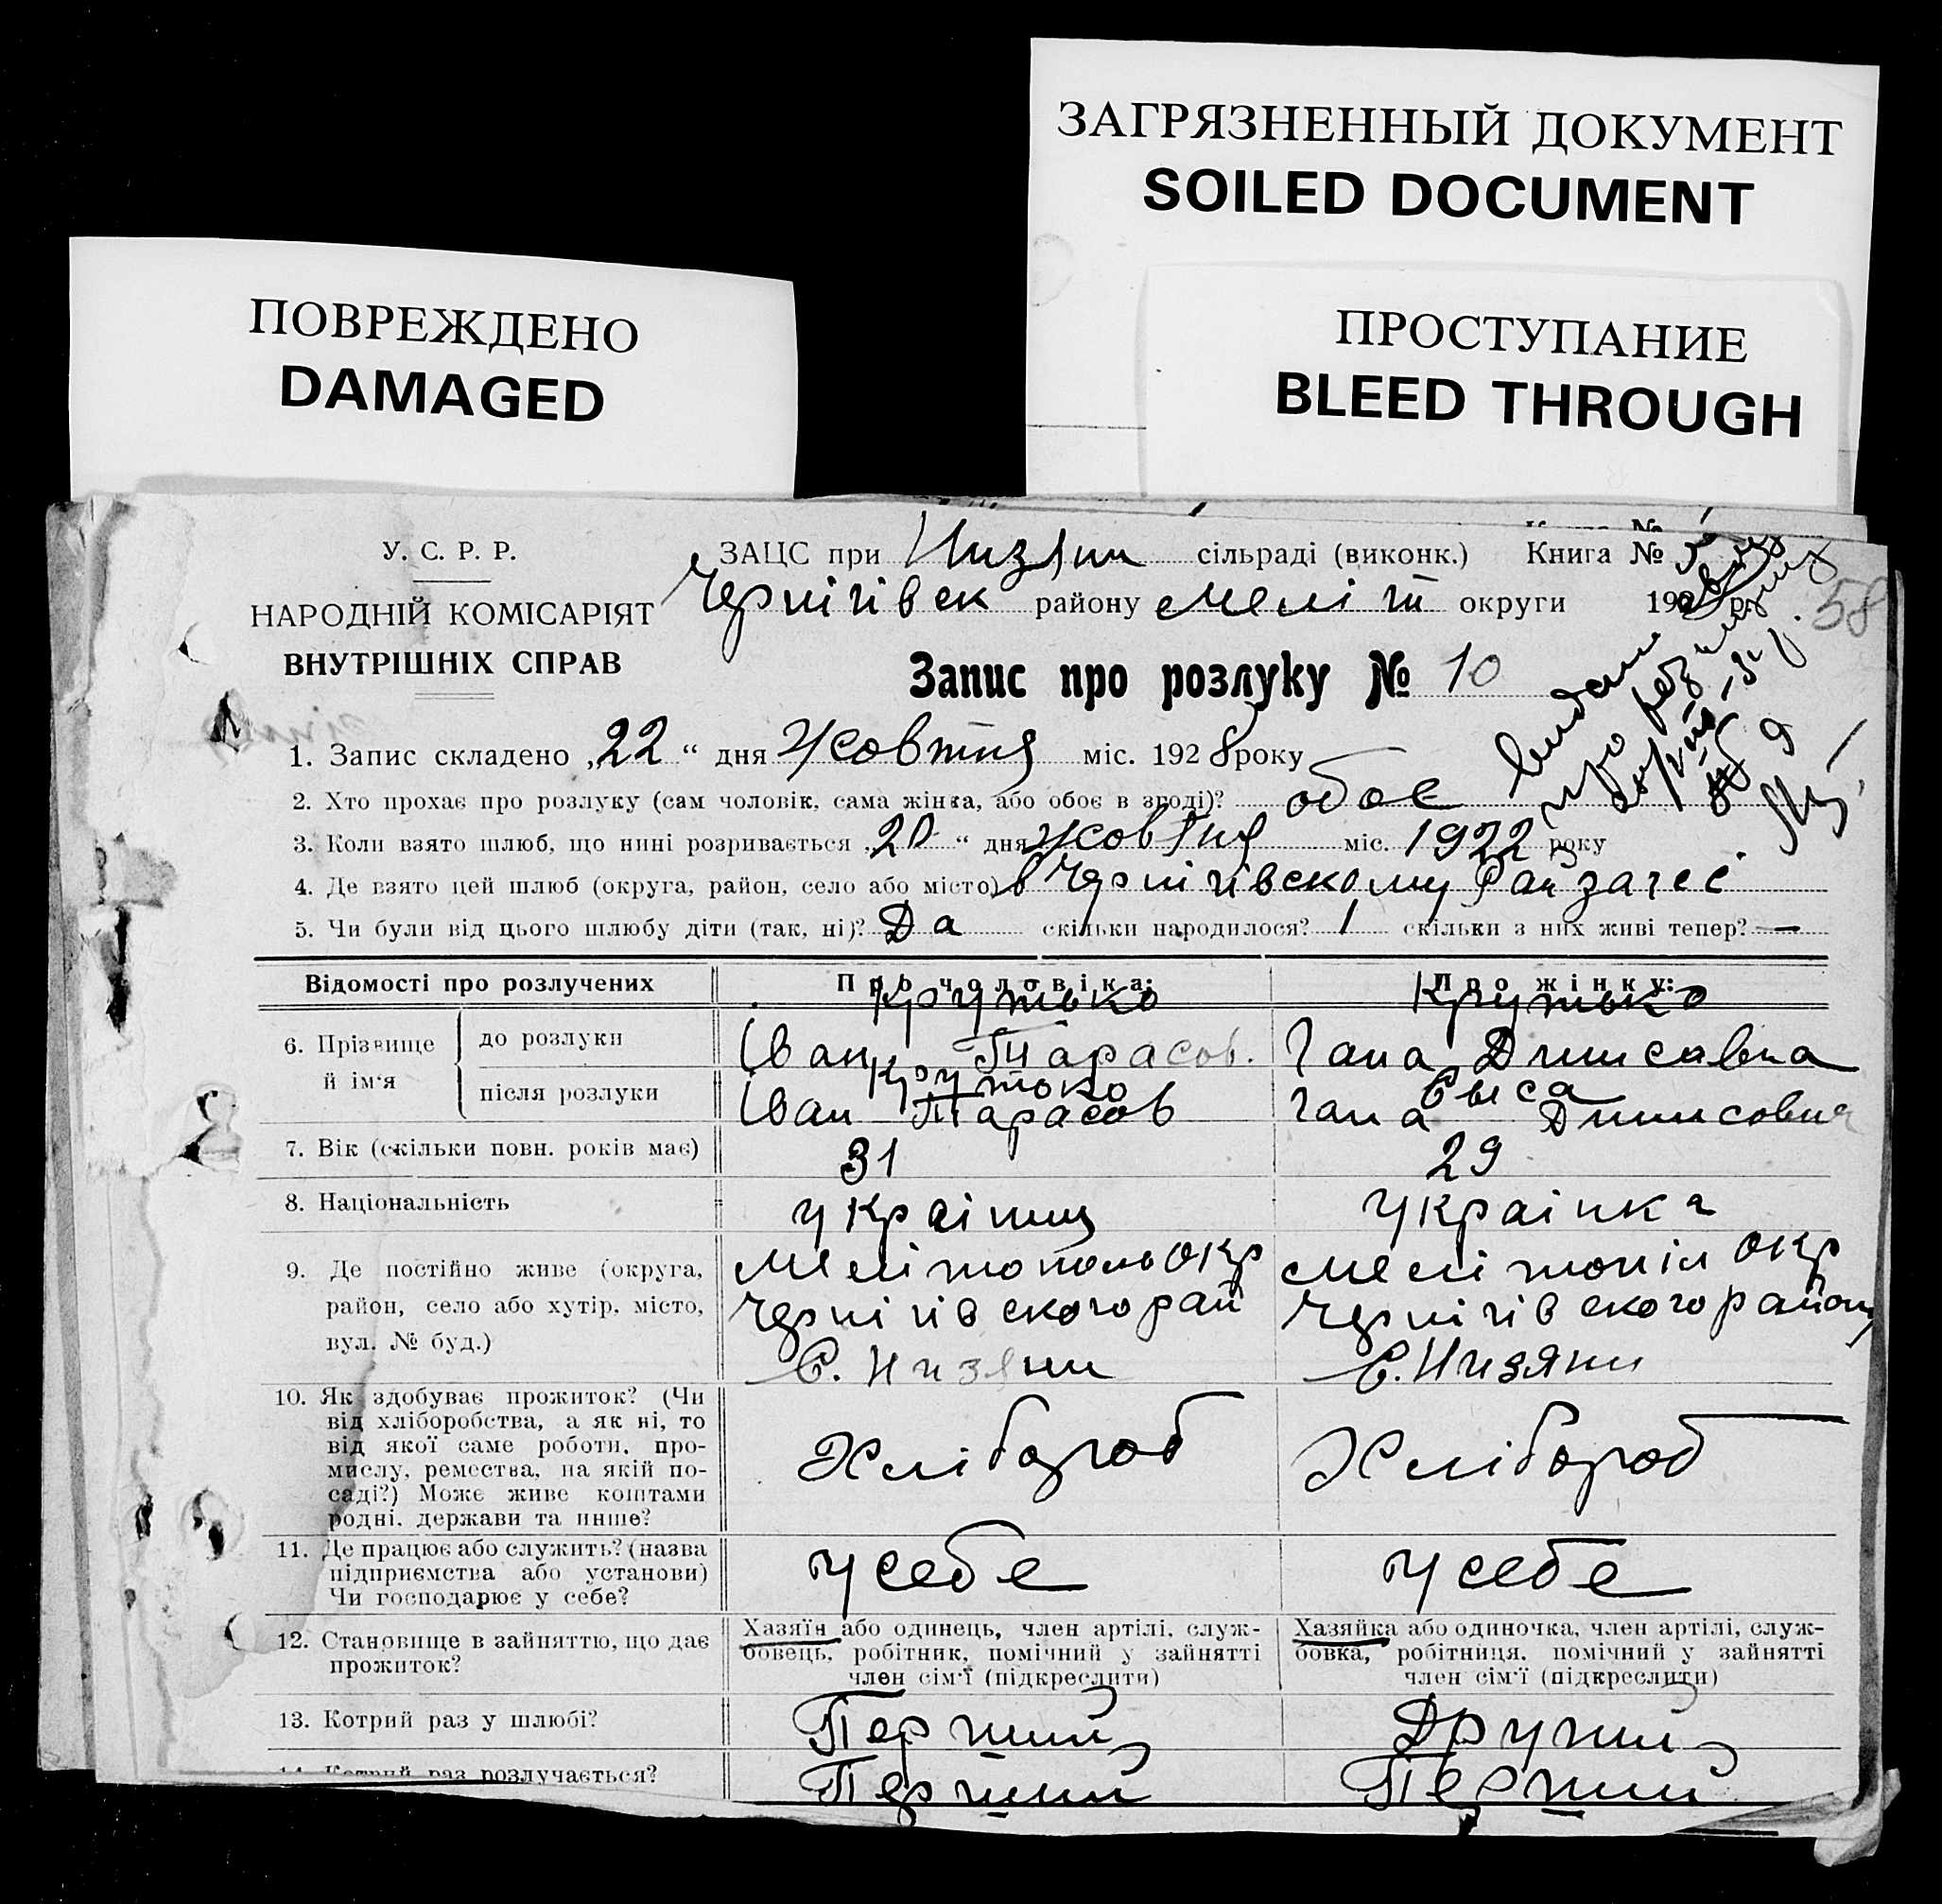 ЗАГРЯЗНЕННЫЙ ДОКУМЕНТ
SOILED DOCUMENT
ПОВРЕЖДЕНО
DAMAGED
ПРОСТУПАНИЕ
BLEED THROUGH
У. С. Р. Р.
НАРОДНІЙ КОМІСАРІЯТ
ВНУТРІШНІХ СПРАВ
ЗАЦС при Низян сільраді (виконк.) Книга №
Чернігівск району Меліт округи 192 р.
58
Запис про розлуку № 10
1. Запис складено „22“ дня Жовтня міс. 1928 року
2. Хто прохає про розлуку (сам чоловік, сама жінка, або обоє в згоді)? обое
3. Коли взято шлюб, що нині розривається „20“ дня жовтня міс. 1922 року
4. Де взято цей шлюб (округа, район, село або місто) в Чернігівскому Райзагсі
5. Чи були від цього шлюбу діти (так, ні)? Да скільки народилося? 1 скільки з них живі тепер? —
Відомості про розлучених Про чоловіка: Про жінку:
6. Прізвище й ім'я
до розлуки Крутько Іван Тарасов. Крутько Гана Денисавна
після розлуки Крутько Іван Тарасов Гана Денисовна
7. Вік (скільки повн. років має) 31 29
8. Національність українц українка
9. Де постійно живе (округа, Мелітополь окр Мелітопіл окр
район, село або хутір, місто, Чернігівского рай Чернігівского району
вул. № буд.) С. Низяни С. Низяни
10. Як здобуває прожиток? (Чи
від хліборобства, а як ні, то
від якої саме роботи, про-
мислу, ремества, на якій по-
саді?) Може живе коштами
родні, держави та инше?
Хлібороб Хлібороб
11. Де працює або служить? (назва
підприємства або установи)
Чи господарює у себе?
у себе у себе
12. Становище в зайняттю, що дає
прожиток?
Хазяїн або одинець, член артілі, служ-
бовець, робітник, помічний у зайнятті
член сім'ї (підкреслити)
Хазяйка або одиночка, член артілі, служ-
бовка, робітниця, помічний у зайнятті
член сім'ї (підкреслити)
13. Котрий раз у шлюбі? Перший Другий
14. Котрий раз розлучається? Перший Перший